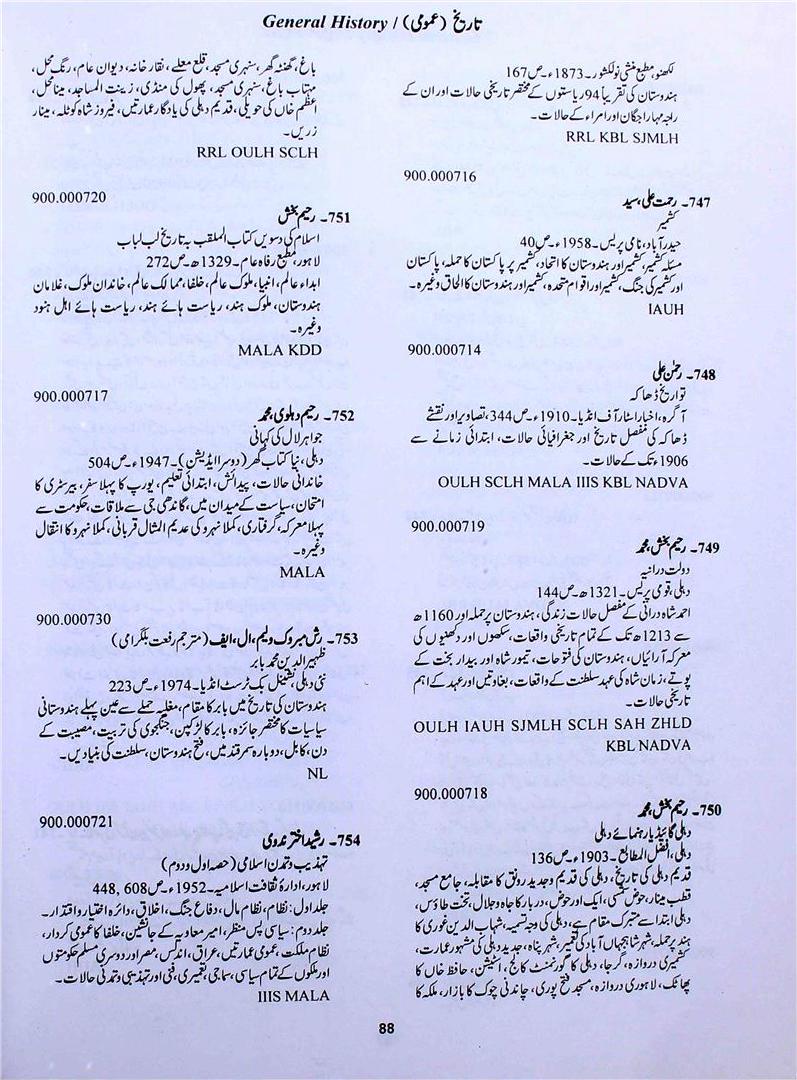 تاریخ (عمومی) / General History
لکھنو، مطبع منشی نولکشور۔ 1873ء۔ ص167
ہندوستان کی تقریباً 94 ریاستوں کے مختصر تاریخی حالات اور ان کے
راجہ مہاراجگان اور امراء کے حالات۔
RRL KBL SJMLH
900.000716
747۔ رحمت علی، سید
کشمیر
حیدرآباد، نامی پریس۔ 1958ء۔ ص40
مسئلہ کشمیر، کشمیر اور ہندوستان کا اتحاد، کشمیر پر پاکستان کا حملہ، پاکستان
اور کشمیر کی جنگ، کشمیر اور اقوام متحدہ، کشمیر اور ہندوستان کا الحاق وغیرہ۔
IAUH
900.000714
748۔ رحمٰن علی
تواریخ ڈھاکہ
آگرہ، اخبار اسٹار آف انڈیا۔ 1910ء۔ ص344، تصاویر اور نقشے
ڈھاکہ کی مفصل تاریخ اور جغرافیائی حالات، ابتدائی زمانے سے
1906ء تک کے حالات۔
OULH SCLH MALA IIIS KBL NADVA
900.000719
749۔ رحیم بخش، محمد
دولت درانیہ
دہلی، قومی پریس۔ 1321ھ۔ ص144
احمد شاہ درانی کے مفصل حالات زندگی، ہندوستان پر حملہ اور 1160ھ
سے 1213ھ تک کے تمام تاریخی واقعات، سکھوں اور دکھنیوں کی
معرکہ آرائیاں، ہندوستان کی فتوحات، تیمور شاہ اور بیدار بخت کے
پوتے، زمان شاہ کی عہد سلطنت کے واقعات، بغاوتیں اور عہد کے اہم
تاریخی حالات۔
OULH IAUH SJMLH SCLH SAH ZHLD
KBL NADVA
900.000718
750۔ رحیم بخش، محمد
دہلی گائیڈ یا رہنمائے دہلی
دہلی، افضل المطابع۔ 1903ء۔ ص136
قدیم دہلی کی تاریخ، دہلی کی قدیم وجدید رونق کا مقابلہ، جامع مسجد،
قطب مینار، حوض شمسی، ایک اور حوض، دربار کا جاہ وجلال، تخت طاؤس،
دہلی ابتدا سے متبرک مقام ہے، دہلی کی وجہ تسمیہ، شہاب الدین غوری کا
ہند پر حملہ، شہر شاہجہاں آباد کی تعمیر، شہر پناہ، جدید دہلی کی مشہور عمارت،
کشمیری دروازہ، گرجا، دہلی کا گورنمنٹ کالج، اسٹیشن، حافظ خاں کا
پھاٹک، لاہوری دروازہ، مسجد فتح پوری، چاندنی چوک کا بازار، ملکہ کا
باغ، گھنٹہ گھر، سنہری مسجد، قلع معلے، نقار خانہ، دیوان عام، رنگ محل،
مہتاب باغ، سنہری مسجد، پھول کی منڈی، زینت المساجد، مینا محل،
اعظم خاں کی حویلی، قدیم دہلی کی یادگار عمارتیں، فیروز شاہ کوٹلہ، مینار
زریں۔
RRL OULH SCLH
900.000720
751۔ رحیم بخش
اسلام کی دسویں کتاب الملقب بہ تاریخ لب لباب
لاہور، مطبع رفاہ عام۔ 1329ھ۔ ص272
ابداء عالم، انبیا، ملوک عالم، خلفا، ممالک عالم، خاندان ملوک، غلامان
ہندوستان، ملوک ہند، ریاست ہائے ہند، ریاست ہائے اہل ہنود
وغیرہ۔
MALA KDD
900.000717
752۔ رحیم دہلوی، محمد
جواہر لال کی کہانی
دہلی، نیا کتاب گھر (دوسرا ایڈیشن)۔ 1947ء۔ ص504
خاندانی حالات، پیدائش، ابتدائی تعلیم، یورپ کا پہلا سفر، بیرسٹری کا
امتحان، سیاست کے میدان میں، گاندھی جی سے ملاقات، حکومت سے
پہلا معرکہ، گرفتاری، کملا نہرو کی عدیم المثال قربانی، کملا نہرو کا انتقال
وغیرہ۔
MALA
900.000730
753۔ رش مبروک ولیم، ال، ایف (مترجم رفعت بلگرامی)
ظہیر الدین محمد بابر
نئی دہلی، نیشنل بک ٹرسٹ انڈیا۔ 1974ء۔ ص223
ہندوستان کی تاریخ میں بابر کا مقام، مغلیہ حملے سے عین پہلے ہندوستانی
سیاسیات کا مختصر جائزہ، بابر کا لڑکپن، جنگجوی کی تربیت، مصیبت کے
دن، کابل، دوبارہ سمرقند میں، فتح ہندوستان، سلطنت کی بنیادیں۔
NL
900.000721
754۔ رشید اختر ندوی
تہذیب وتمدن اسلامی (حصہ اول ودوم)
لاہور، ادارۂ ثقافت اسلامیہ۔ 1952ء۔ ص608, 448
جلد اول: نظام، نظام مال، دفاع جنگ، اخلاق، دائرہ اختیار واقتدار۔
جلد دوم: سیاسی پس منظر، امیر معاویہ کے جانشین، خلفا کا عمومی کردار،
نظام ملکت، عمومی عمارتیں، عراق، اندلس، مصر اور دوسری مسلم حکومتوں
اور ملکوں کے تمام سیاسی، سماجی، تعمیری، فنی اور تہذیبی وتمدنی حالات۔
IIIS MALA
88